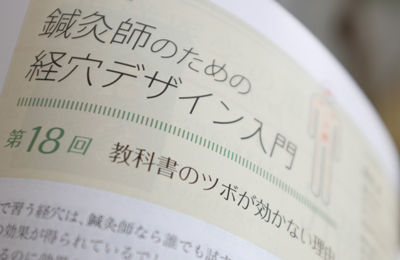 鍼灸師のための
経穴デザイン入門
第18回 教科書のツボが効かない理由
で習う経穴は、鍼灸師なら誰でも試す
の効果が得られているでし